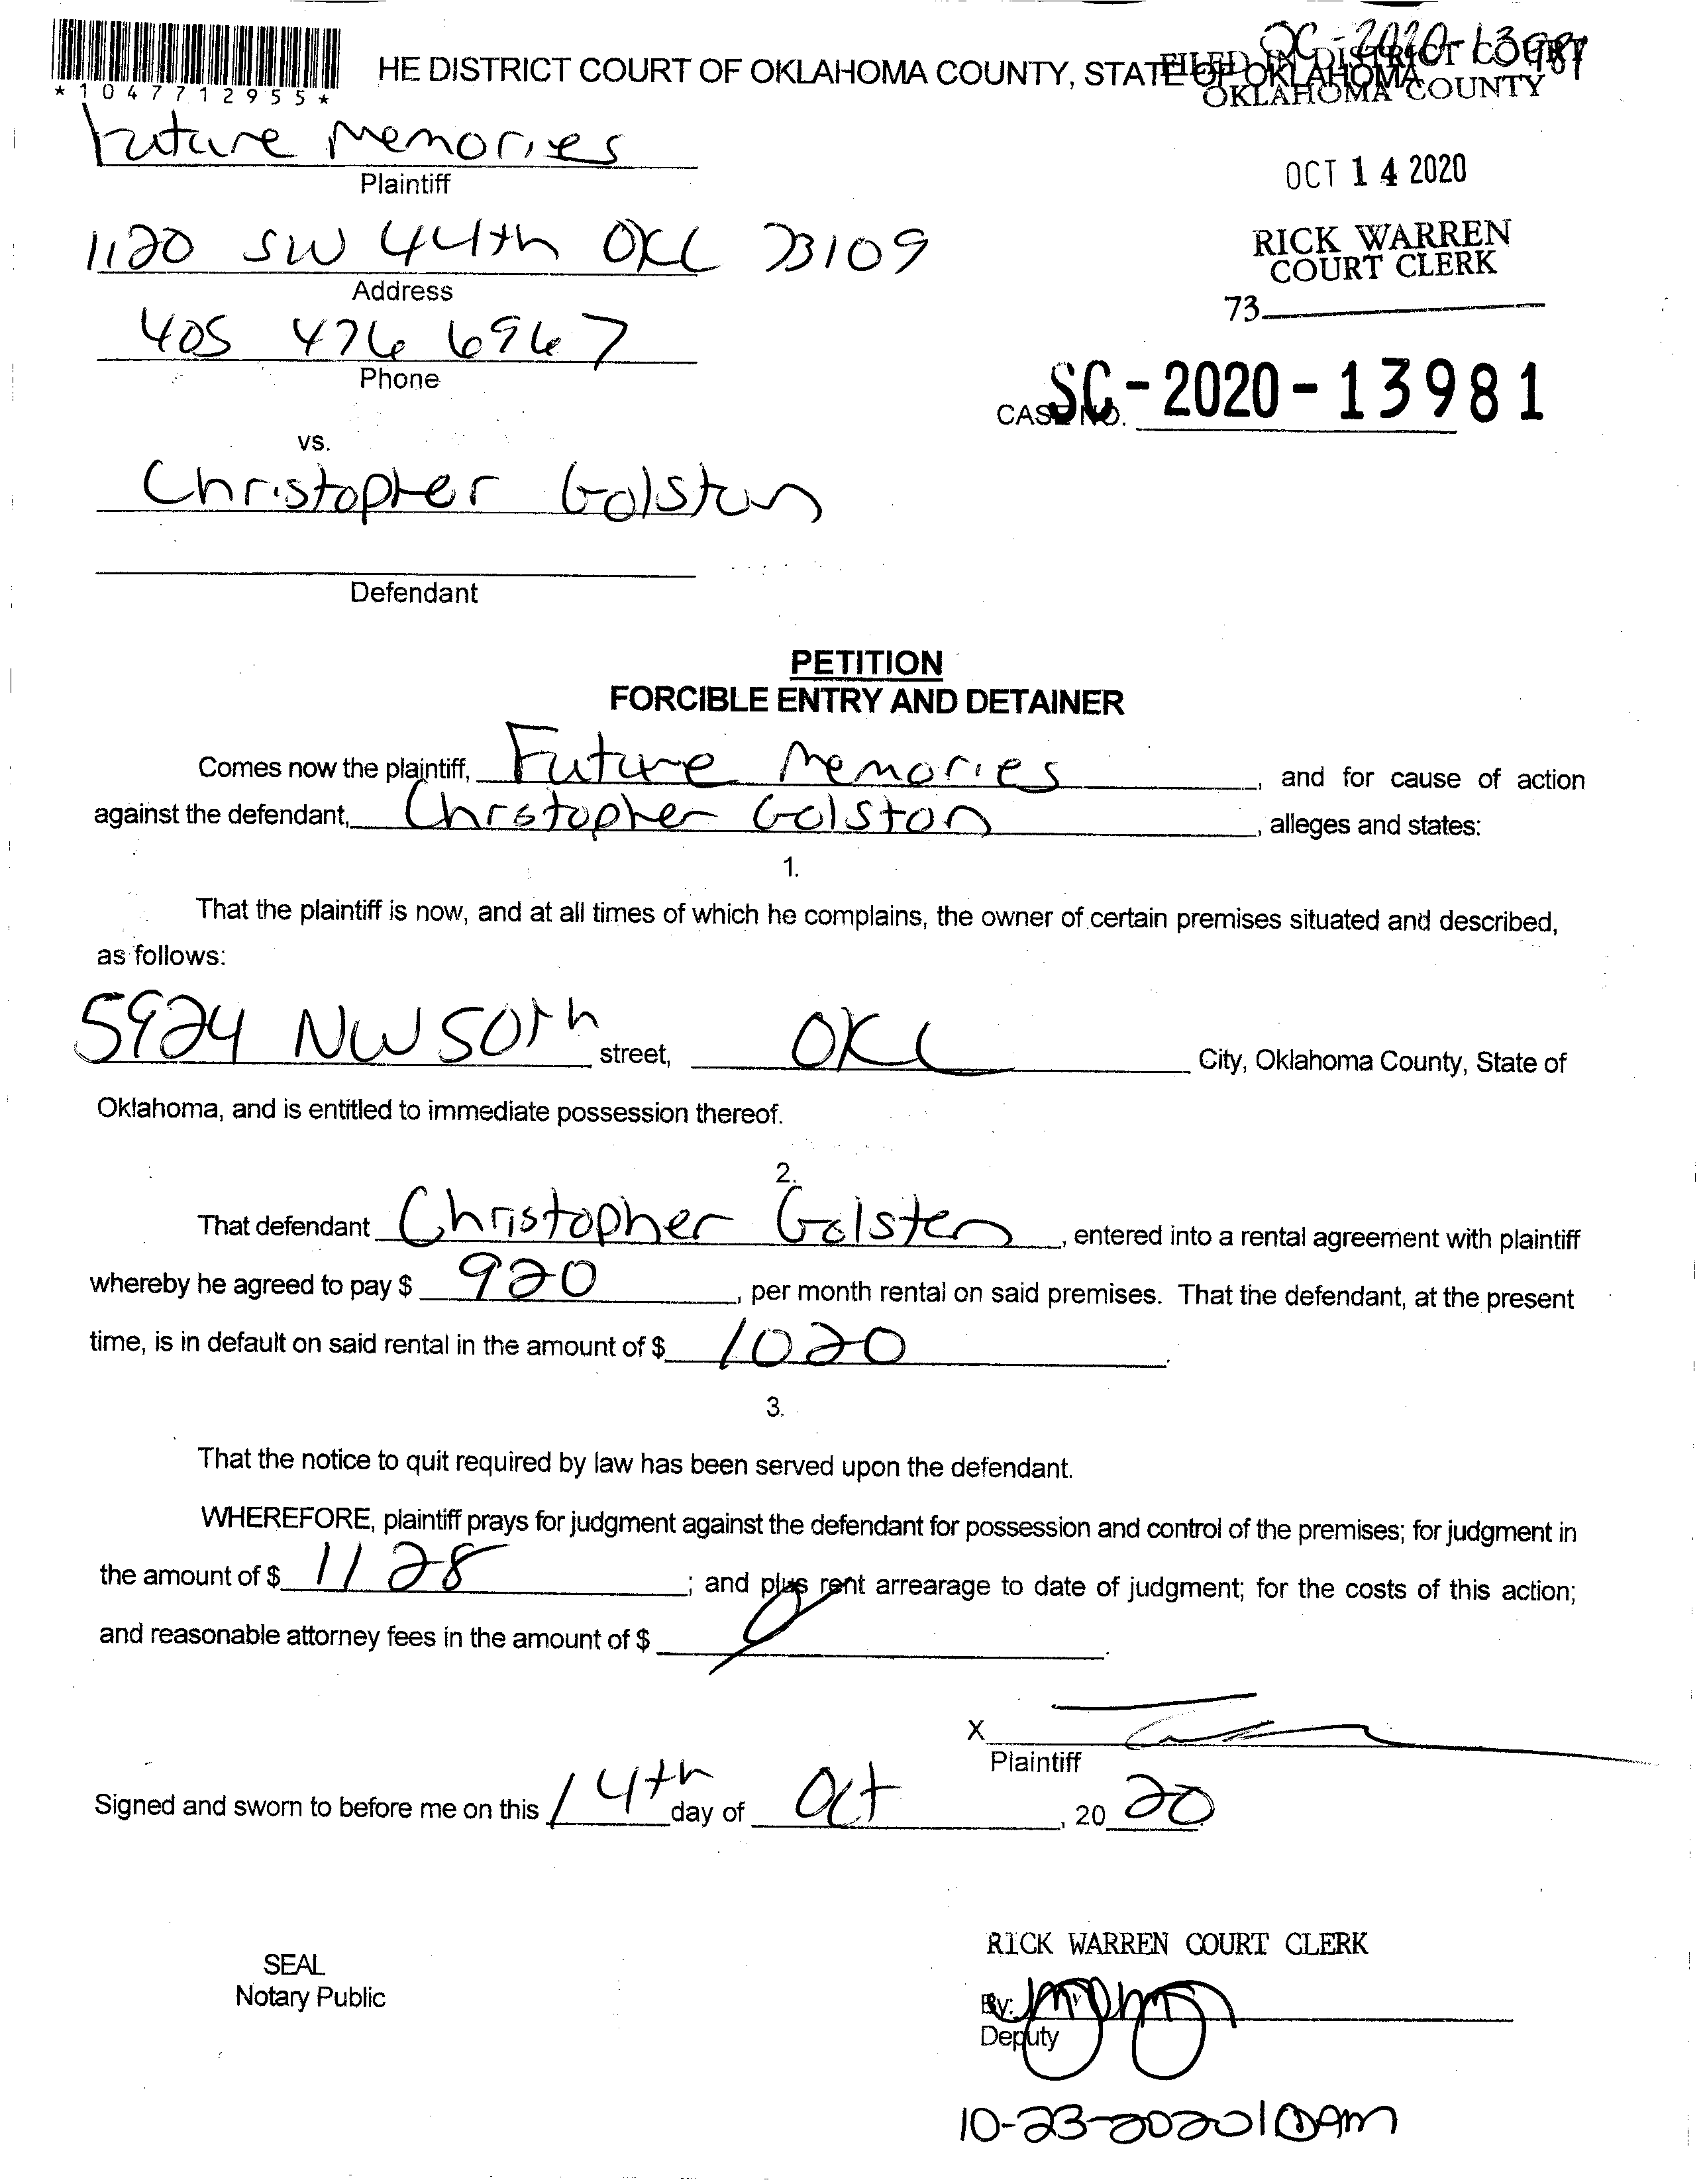 SC-2020-13981
HE DISTRICT COURT OF OKLAHOMA COUNTY, STATE OF OKLAHOMA
FILED IN DISTRICT COURT
OKLAHOMA COUNTY
*1047712955*
Future Memories
Plaintiff
OCT 14 2020
1120 SW 44th OKC 73109
Address
RICK WARREN
COURT CLERK
73
405 476 6967
Phone
CASE NO. SC-2020-13981
vs.
Christopher Golston
Defendant
PETITION
FORCIBLE ENTRY AND DETAINER
Comes now the plaintiff, Future Memories, and for cause of action
against the defendant, Chrstopher Golston, alleges and states:
1.
That the plaintiff is now, and at all times of which he complains, the owner of certain premises situated and described,
as follows:
5924 NW 50th street, OKC City, Oklahoma County, State of
Oklahoma, and is entitled to immediate possession thereof.
2.
That defendant Christopher Golston, entered into a rental agreement with plaintiff
whereby he agreed to pay $ 920, per month rental on said premises. That the defendant, at the present
time, is in default on said rental in the amount of $ 1020.
3.
That the notice to quit required by law has been served upon the defendant.
WHEREFORE, plaintiff prays for judgment against the defendant for possession and control of the premises; for judgment in
the amount of $ 1128; and plus rent arrearage to date of judgment; for the costs of this action;
and reasonable attorney fees in the amount of $ 0.
X
Plaintiff
Signed and sworn to before me on this 14th day of Oct, 20 20
RICK WARREN COURT CLERK
SEAL
Notary Public
By:
Deputy
10-23-2020 10AM